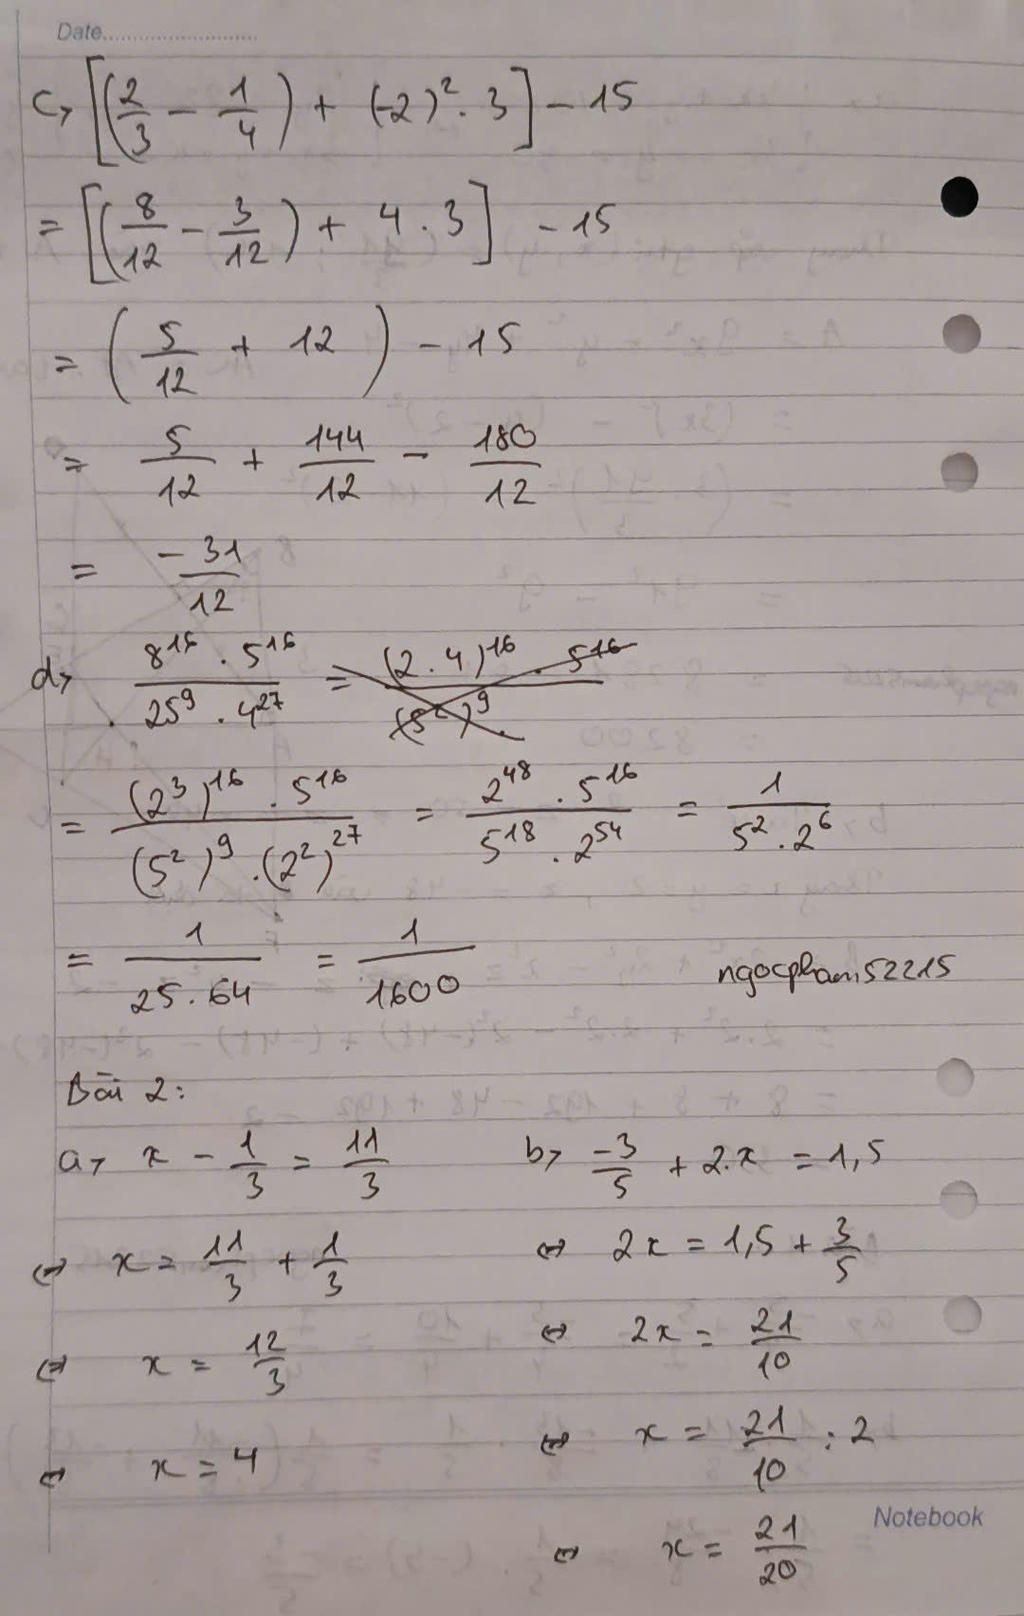 Date..............................
c, [(2/3 - 1/4) + (-2)² . 3] - 15
= [(8/12 - 3/12) + 4 . 3] - 15
= (5/12 + 12) - 15
= 5/12 + 144/12 - 180/12
= -31/12
d, 8¹⁶ . 5¹⁶ / 25⁹ . 4²⁷ = (2 . 4)¹⁶ . 5¹⁶ / (5²)⁹ .
= (2³)¹⁶ . 5¹⁶ / (5²)⁹ . (2²)²⁷ = 2⁴⁸ . 5¹⁶ / 5¹⁸ . 2⁵⁴ = 1 / 5² . 2⁶
= 1 / 25 . 64 = 1/1600
ngocpham52215
Bài 2:
a, x - 1/3 = 11/3
⇔ x = 11/3 + 1/3
⇔ x = 12/3
⇔ x = 4
b, -3/5 + 2.x = 1,5
⇔ 2x = 1,5 + 3/5
⇔ 2x = 21/10
⇔ x = 21/10 : 2
⇔ x = 21/20
Notebook